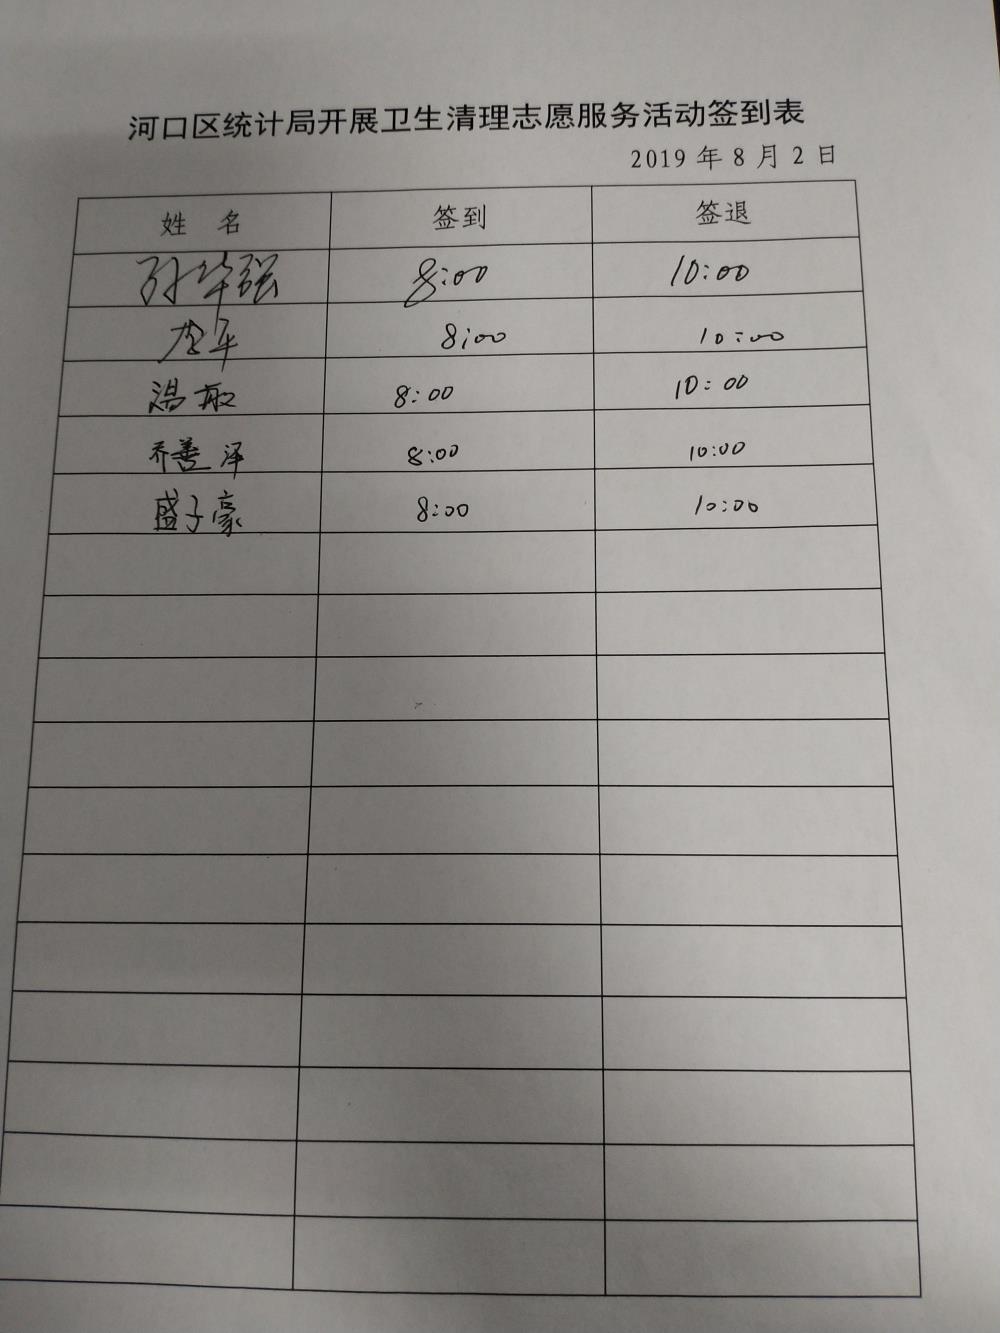 河口区统计局开展卫生清理志愿服务活动签到表
2019年8月2日
姓 名 签到 签退
孙华强 8:00 10:00
8:00 10:00
温敏 8:00 10:00
乔善泽 8:00 10:00
盛子豪 8:00 10:00